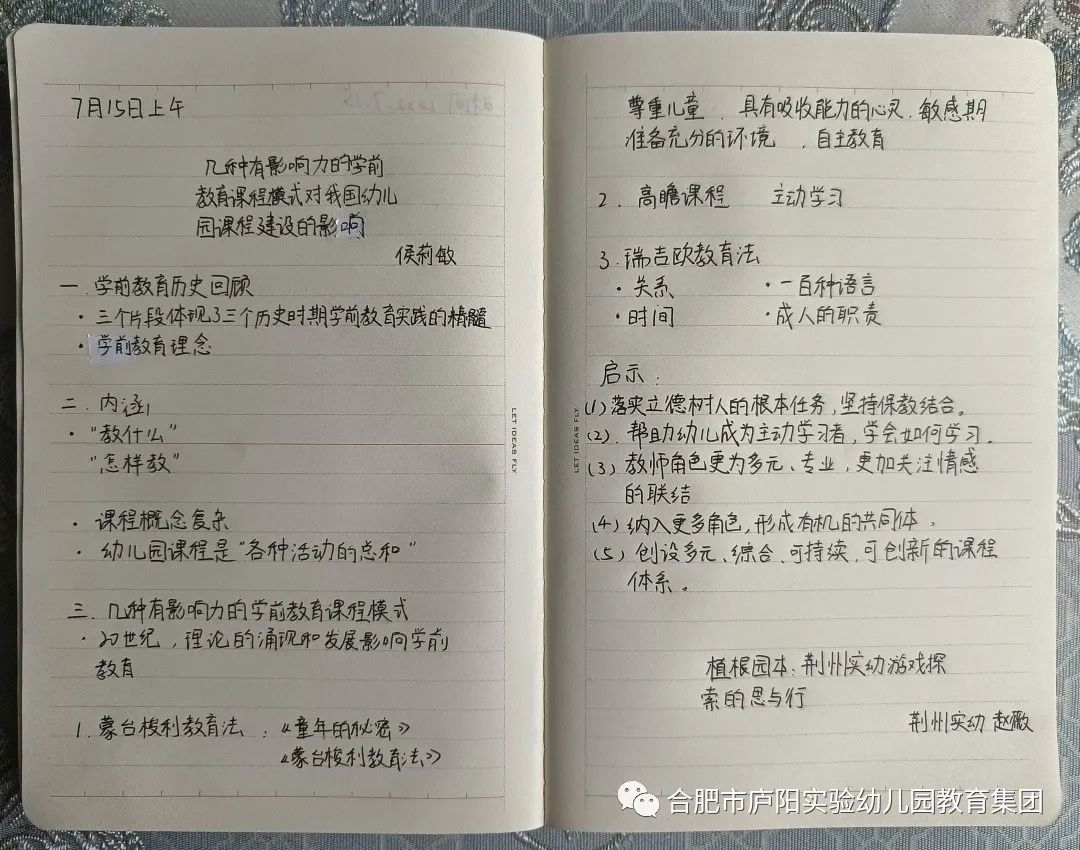 7月15日上午
几种有影响力的学前
教育课程模式对我国幼儿
园课程建设的影响
侯莉敏
一. 学前教育历史回顾
· 三个片段体现了三个历史时期学前教育实践的精髓
· 学前教育理念
二. 内涵
· "教什么"
"怎样教"
· 课程概念复杂
· 幼儿园课程是"各种活动的总和"
三. 几种有影响力的学前教育课程模式
· 20世纪，理论的涌现和发展影响学前
教育
1. 蒙台梭利教育法：《童年的秘密》
《蒙台梭利教育法》
LET IDEAS FLY
尊重儿童、具有吸收能力的心灵、敏感期
准备充分的环境、自主教育
2. 高瞻课程 主动学习
3. 瑞吉欧教育法
· 关系 · 一百种语言
· 时间 · 成人的职责
启示：
(1) 落实立德树人的根本任务，坚持保教结合。
(2). 帮助幼儿成为主动学习者，学会如何学习。
(3) 教师角色更为多元、专业，更加关注情感
的联结
(4) 纳入更多角色，形成有机的共同体。
(5) 创设多元、综合、可持续、可创新的课程
体系。
植根园本：荆州实幼游戏探
索的思与行
荆州实幼 赵薇
LET IDEAS FLY
合肥市庐阳实验幼儿园教育集团